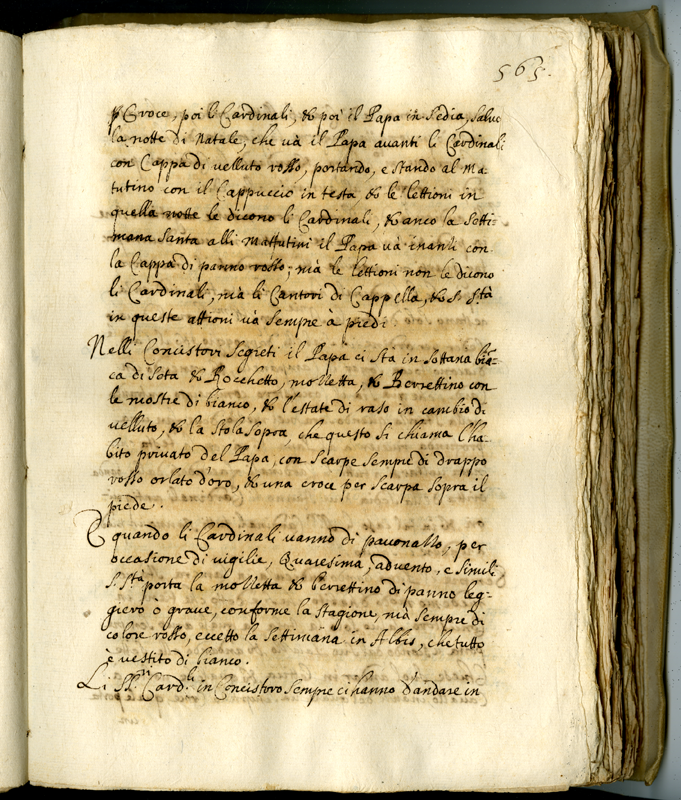 565.
p Croce, poi li Cardinali, & poi il Papa in sedia, salvo
la notte di Natale, che và il Papa avanti li Cardinali
con Cappa di velluto rosso, portando, e stando al Ma
tutino con il Cappuccio in testa, & le lettioni in
quella notte le dicono li Cardinali, & anco la Setti-
mana Santa alli Mattutini il Papa và inanti con
la Cappa di panno rosso; mà le lettioni non le dicono
li Cardinali, mà li Cantori di Cappella, & S. Stà
in queste attioni và sempre à piedi.
Nelli Concistori segreti il Papa ci stà in sottana biã=
ca di seta & Rocchetto, mozzetta, & Berrettino con
le mostre di bianco, & l'estate di raso in cambio di
velluto, & la stola sopra, che questo si chiama l'ha-
bito privato del Papa, con scarpe sempre di drappo
rosso orlato d'oro, & una croce per scarpa sopra il
piede.
E quando li Cardinali vanno di pavonazzo, per
occasione di vigilie, Quaresima, advento, e simili
S. Stà porta la mozzetta & berrettino di panno leg-
giero ò grave, conforme la stagione, mà sempre di
colore rosso, eccetto la settimana in Albis, che tutto
è vestito di bianco.
Li SS.ri Card.li in Concistoro sempre ci hanno d'andare in